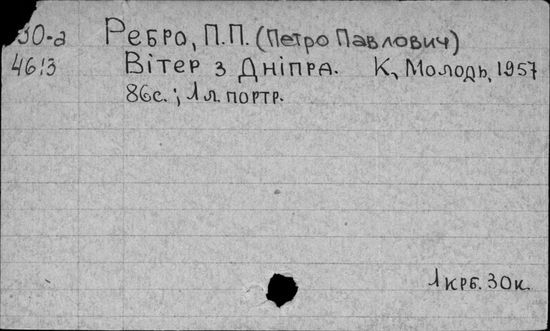 30-а Ребро, П.П. (Петро Павлович)
4613 Вітер з Дніпра. К, Молодь, 1957
86с.; 1 л. портр.
1 крб. 30к.